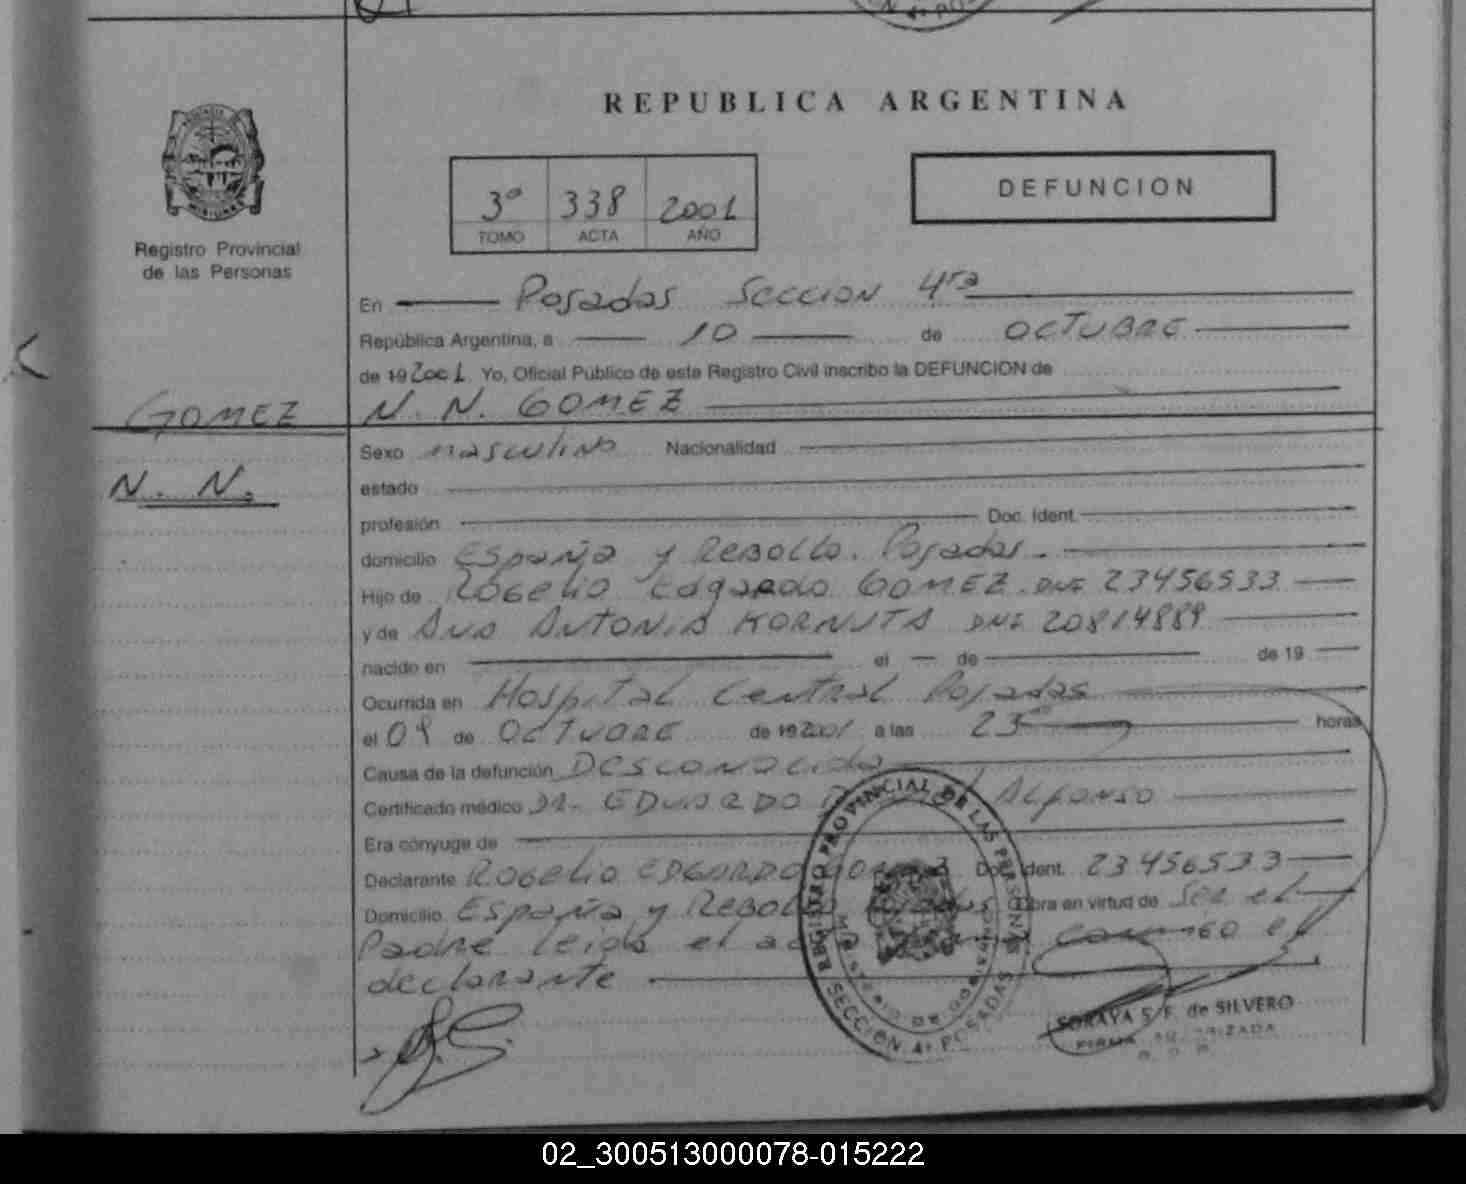 REPUBLICA ARGENTINA
3º 338 2001
TOMO ACTA AÑO
DEFUNCION
Registro Provincial
de las Personas
En Posadas Sección 4ta
República Argentina, a 10 de OCTUBRE
de 19 2001 Yo, Oficial Público de este Registro Civil inscribo la DEFUNCION de
GOMEZ
N. N. GOMEZ
N. N.
Sexo masculino Nacionalidad
estado
profesión Doc. Ident.
domicilio España y Rebollo. Posadas.
Hijo de Rogelio Edgardo GOMEZ DNI 23456533
y de Ana Antonia KORNUTA DNI 20814889
nacido en el de de 19
Ocurrida en Hospital Central Posadas
el 09 de OCTUBRE de 19 2001 a las 23 horas
Causa de la defunción Desconocida
Certificado médico Dr. EDUARDO Alfonso
Era cónyuge de
Declarante Rogelio EDGARDO Gomez Doc. Ident. 23456533
Domicilio España y Rebollo Posadas Obra en virtud de Ser el
Padre Leida el conmigo el
declarante
REGISTRO PROVINCIAL DE LAS PERSONAS
MINISTERIO DE GOBIERNO
SECCION 4ª POSADAS
SORAYA S. F. de SILVERO
FIRMA AUTORIZADA
02_300513000078-015222